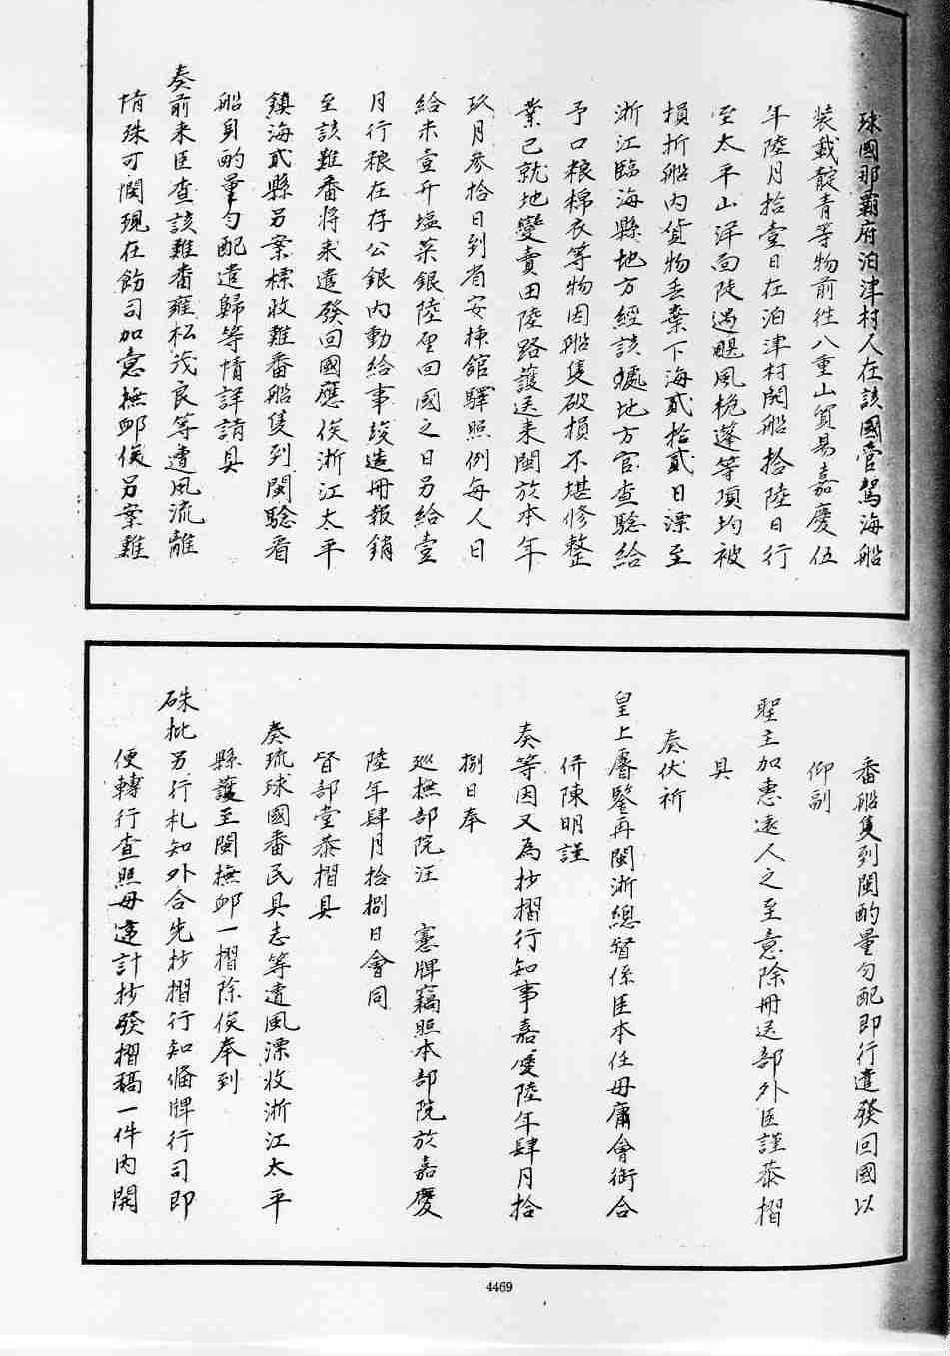 球國那霸府泊津村人在該國管駕海船
裝載靛青等物前往八重山貿易嘉慶伍
年陸月拾壹日在泊津村開船拾陸日行
至太平山洋面陡遇颶風桅蓬等項均被
損折船內貨物丟棄下海貳拾貳日漂至
浙江臨海縣地方經該處地方官查驗給
予口粮棉衣等物因船隻破損不堪修整
業已就地變賣由陸路護送來閩於本年
玖月參拾日到省安揷館驛照例每人日
給米壹升塩菜銀陸厘回國之日另給壹
月行粮在存公銀內動給事竣造冊報銷
至該難番將來遣發回國應俟浙江太平
鎮海貳縣另案標收難番船隻到閩驗看
船身酌量勻配遣歸等情詳請具
奏前來臣查該難番雍松茂良等遭風流離
情殊可憫現在飭司加意撫卹俟另案難
番船隻到閩酌量勻配即行遣發回國以
仰副
聖主加惠遠人之至意除冊送部外臣謹恭摺
具
奏伏祈
皇上睿鑒再閩浙總督係臣本任毋庸會銜合
併陳明謹
奏等因又為抄摺行知事嘉慶陸年肆月拾
捌日奉
巡撫部院汪 憲牌竊照本部院於嘉慶
陸年肆月拾捌日會同
督部堂恭摺具
奏琉球國番民具志等遭風漂收浙江太平
縣護至閩撫卹一摺除俟奉到
硃批另行札知外合先抄摺行知備牌行司即
便轉行查照毋違計抄發摺稿一件內開
4469